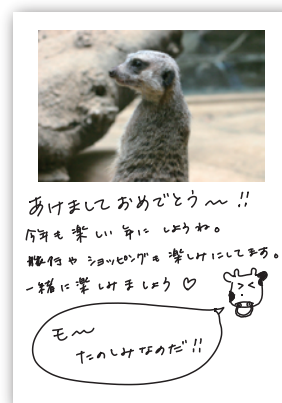 あけましておめでとう〜!!
今年も楽しい年にしようね。
旅行やショッピングも楽しみにしてます。
一緒に楽しみましょう♡
モ〜
たのしみなのだ!!